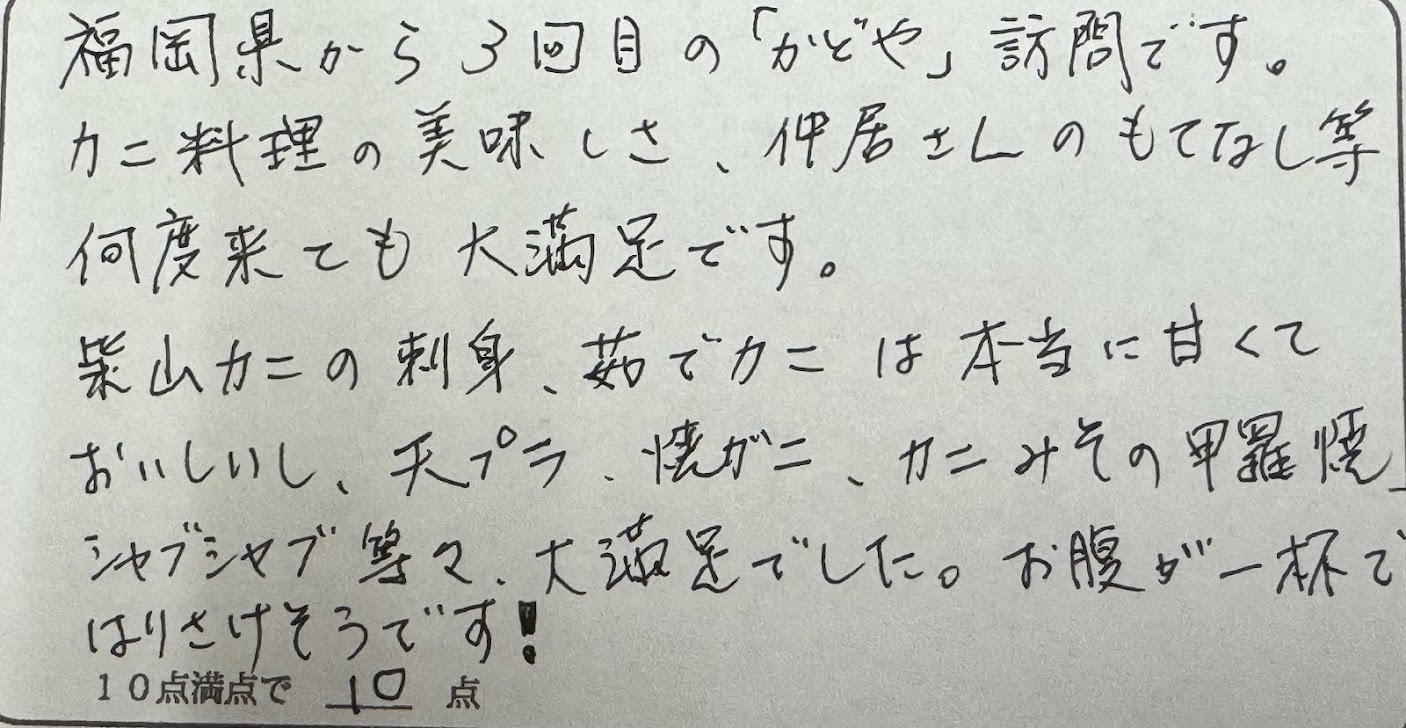 福岡県から3回目の「かどや」訪問です。
カニ料理の美味しさ、仲居さんのもてなし等
何度来ても大満足です。
柴山カニの刺身、茹でカニは本当に甘くて
おいしいし、天プラ、焼ガニ、カニみその甲羅焼
シャブシャブ等々、大満足でした。お腹が一杯で
はりさけそうです!
10点満点で 10 点